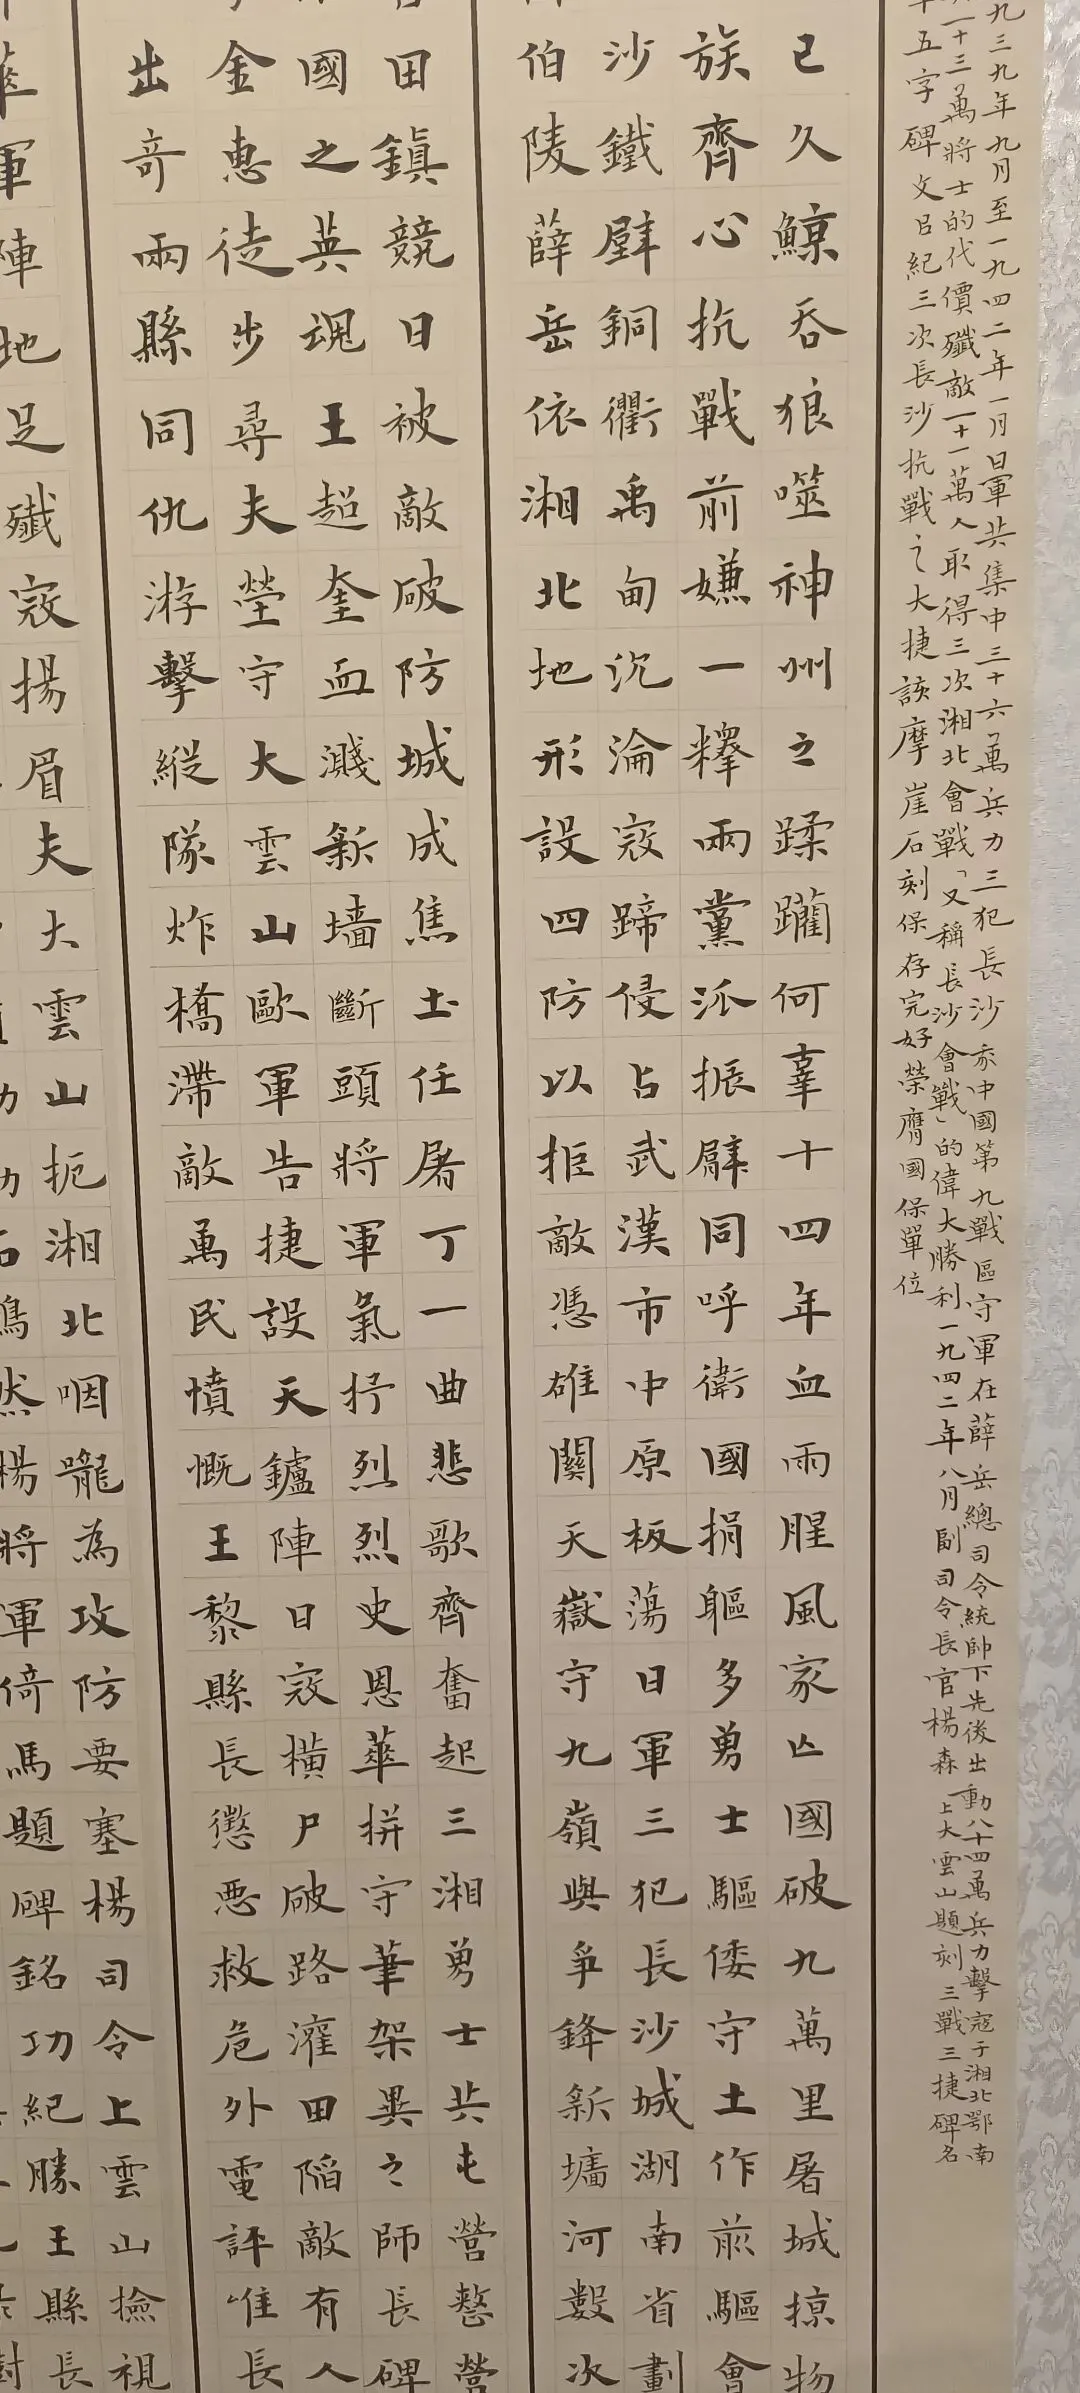 九三九年九月至一九四二年一月日軍共集中三十六萬兵力三犯長沙我中國第九戰區守軍在薛岳總司令統帥下先後出動八十四萬兵力擊寇于湘北鄂南
十三萬將士的代價殲敵十一萬人取得三次湘北會戰「又稱長沙會戰」的偉大勝利一九四二年八月副司令長官楊森上大雲山題刻三戰三捷碑名
五字碑文以紀三次長沙抗戰之大捷該摩崖石刻保存完好榮膺國保單位
已久鯨吞狼噬神州之蹂躪何辜十四年血雨腥風家亡國破九萬里屠城掠物
族齊心抗戰前嫌一釋兩黨派振臂同呼衛國捐軀多勇士驅倭守土作前驅會
沙鐵壁銅衢禹甸沉淪寇蹄侵占武漢市中原板蕩日軍三犯長沙城湖南省劃
伯陵薛岳依湘北地形設四防以拒敵憑雄關天嶽守九嶺與爭鋒新墻河數次
田鎮競日被敵破防城成焦土任屠丁一曲悲歌齊奮起三湘勇士共屯營整營
國之英魂王超奎血濺新墻斷頭將軍氣抒烈烈史恩華拼守筆架異之師長碑
金惠徒步尋夫塋守大雲山歐軍告捷設天鑪陣日寇橫尸破路灌田陷敵有人
出奇兩縣同仇游擊縱隊炸橋滯敵萬民憤慨王黎縣長懲惡救危外電評唯長
夫大雲山扼湘北咽嚨為攻防要塞楊司令上雲山撿視
軍陣地足殲寇揚眉
將軍倚馬題碑銘功紀勝王縣長